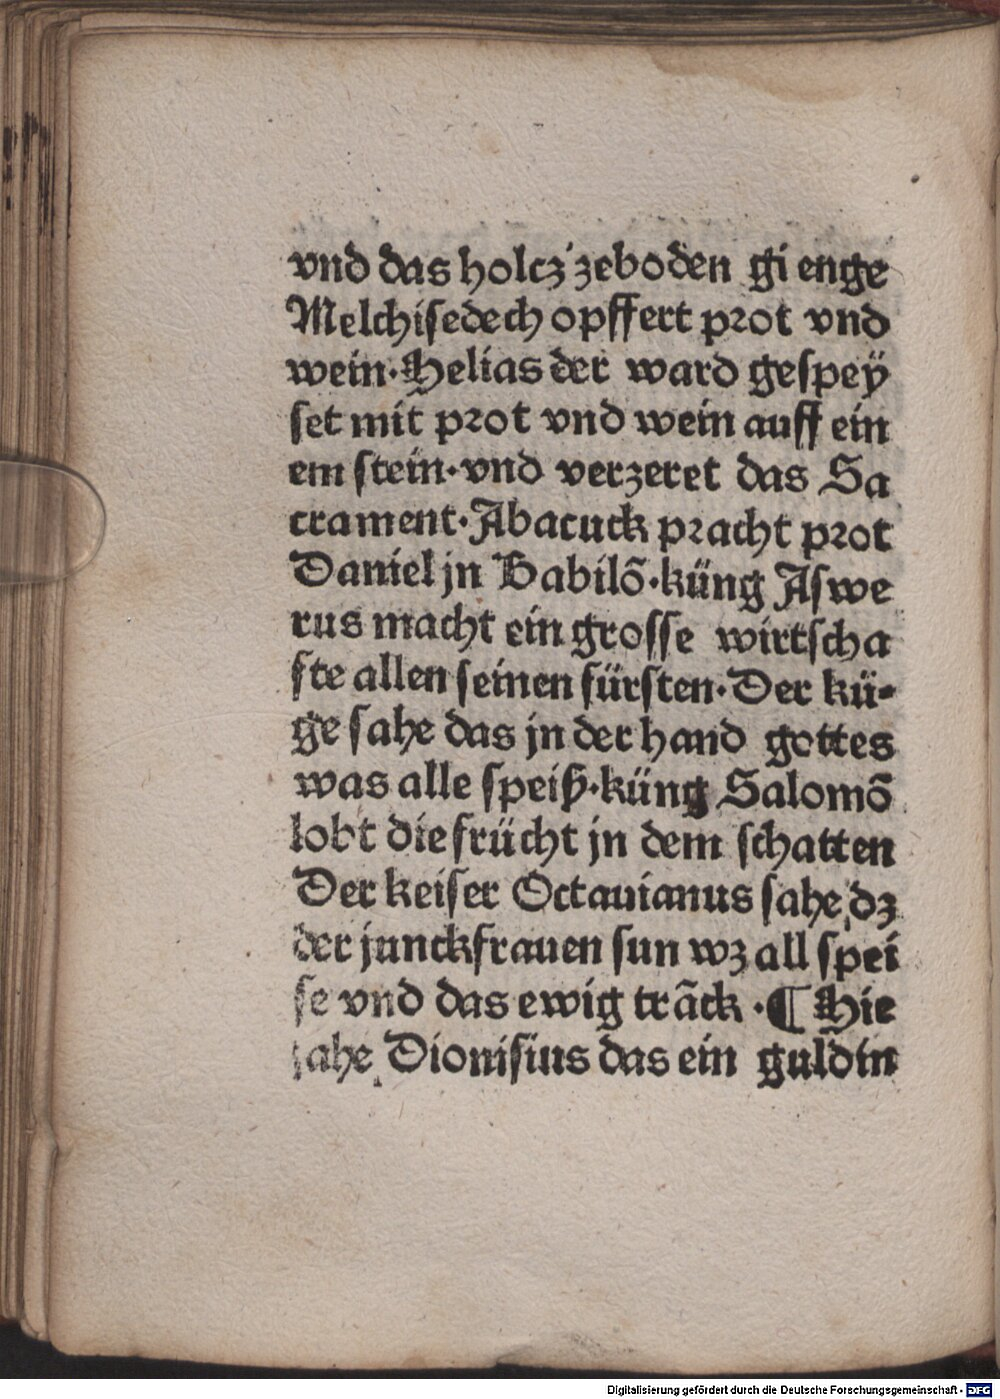 vnd das holcz zeboden gi enge
Melchisedech opffert prot vnd
wein·Helias der ward gespeÿ
set mit prot vnd wein auff ein
em stein·vnd verzeret das Sa
crament·Abacuck pracht prot
Daniel jn Babilō·küng Aswe
rus macht ein grosse wirtscha
fte allen seinen fürsten·Der kü-
ge sahe das jn der hand gottes
was alle speiß·küng Salomō
lobt die frücht jn dem schatten
Der keiser Octauianus sahe dz
der junckfrauen sun wz all spei
se vnd das ewig trāck·¶ Hie
sahe Dionisius das ein guldin
Digitalisierung gefördert durch die Deutsche Forschungsgemeinschaft - DFG